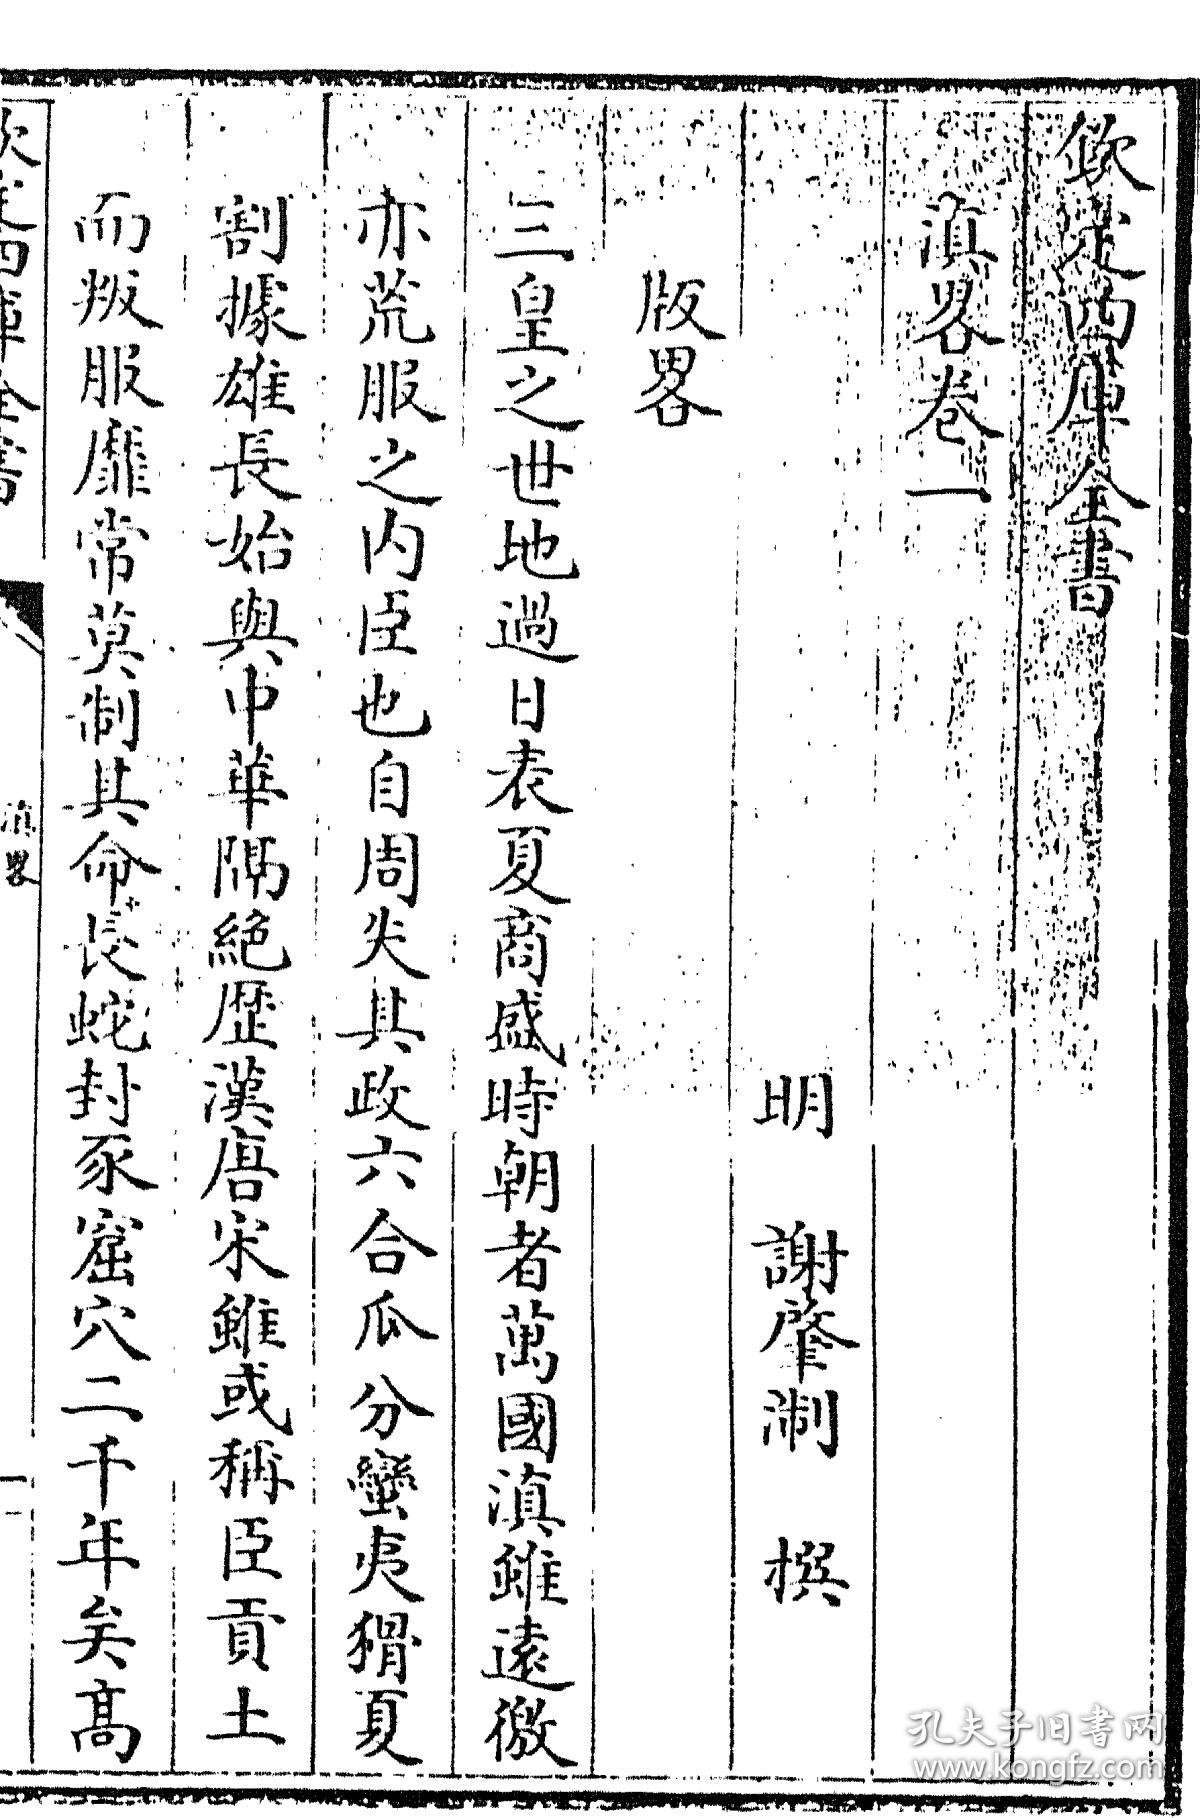 欽定四庫全書
滇畧卷一
明 謝肇淛 撰
版畧
三皇之世地過日表夏商盛時朝者萬國滇雖遠徼
亦荒服之内臣也自周失其政六合瓜分蠻夷猾夏
割據雄長始與中華隔絶歴漢唐宋雖或稱臣貢土
而叛服靡常莫制其命長蛇封豕窟穴二千年矣髙
欽定四庫全書
滇畧
一
孔夫子旧書网
www.kongfz.com